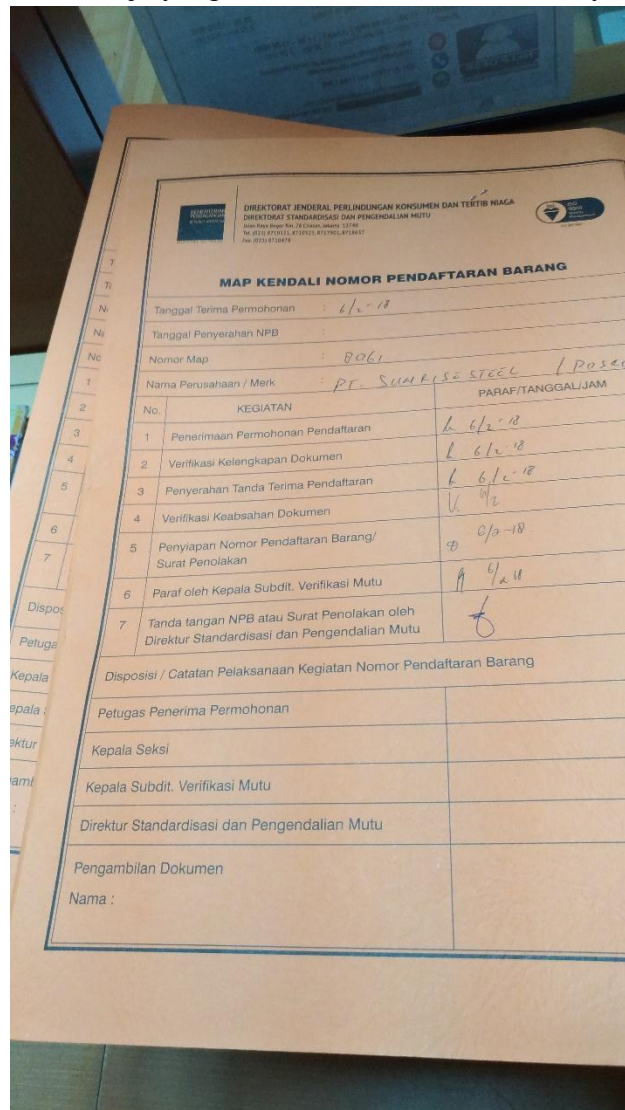 DIREKTORAT JENDERAL PERLINDUNGAN KONSUMEN DAN TERTIB NIAGA
DIREKTORAT STANDARDISASI DAN PENGENDALIAN MUTU
MAP KENDALI NOMOR PENDAFTARAN BARANG
Tanggal Terima Permohonan : 6/2-18
Tanggal Penyerahan NPB :
Nomor Map :
Nama Perusahaan / Merk : PT. SUNRISE STEEL /
No. KEGIATAN PARAF/TANGGAL/JAM
1 Penerimaan Permohonan Pendaftaran 6/2-18
2 Verifikasi Kelengkapan Dokumen 6/2-18
3 Penyerahan Tanda Terima Pendaftaran 6/2-18
4 Verifikasi Keabsahan Dokumen 6/2
5 Penyiapan Nomor Pendaftaran Barang/ 6/2-18
Surat Penolakan
6 Paraf oleh Kepala Subdit. Verifikasi Mutu 6/2 18
7 Tanda tangan NPB atau Surat Penolakan oleh
Direktur Standardisasi dan Pengendalian Mutu
Disposisi / Catatan Pelaksanaan Kegiatan Nomor Pendaftaran Barang
Petugas Penerima Permohonan
Kepala Seksi
Kepala Subdit. Verifikasi Mutu
Direktur Standardisasi dan Pengendalian Mutu
Pengambilan Dokumen
Nama :